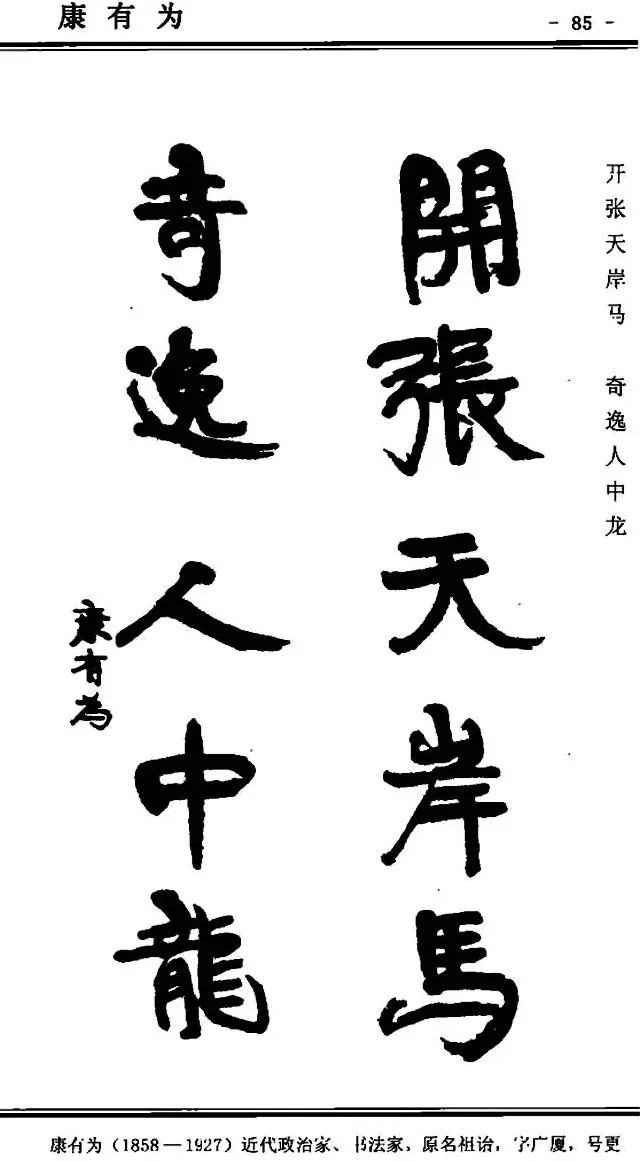 康有为
- 85 -
开张天岸马 奇逸人中龙
開張天岸馬
奇逸人中龍
康有為
康有为(1858—1927)近代政治家、书法家,原名祖诒,字广厦,号更